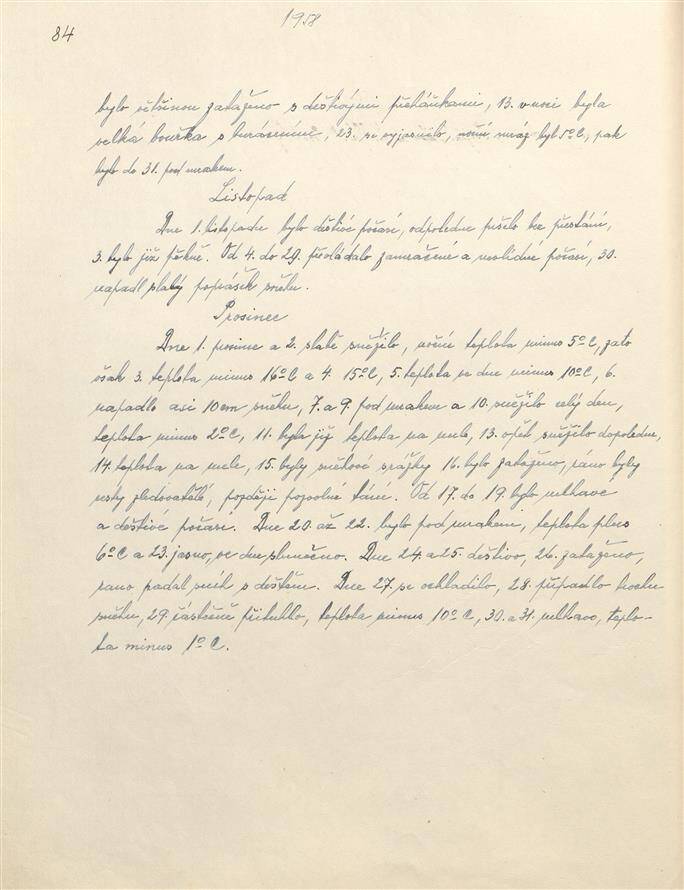 1958
84
bylo většinou zataženo s dešťovými přeháňkami, 13. v noci byla
velká bouřka s burácením, 23. se vyjasnilo, noční mráz byl 5°C, pak
bylo do 31. pod mrakem.
Listopad
Dne 1. listopadu bylo deštivé počasí, odpoledne pršelo bez přestání,
3. bylo již pěkně. Od 4. do 29. převládalo zamračené a neklidné počasí, 30.
napadl slabý poprašek sněhu.
Prosinec
Dne 1. prosince a 2. slabě sněžilo, noční teplota minus 5°C, zato
však 3. teplota minus 16°C a 4. 15°C, 5. teplota ve dne minus 10°C, 6.
napadlo asi 10 cm sněhu, 7. a 9. pod mrakem a 10. sněžilo celý den,
teplota minus 2°C, 11. byla již teplota na nule, 13. opět sněžilo dopoledne,
14. teplota na nule, 15. byly sněhové srážky 16. bylo zataženo, ráno byly
cesty zledovatělé, později pozvolné tání. Od 17. do 19. bylo mlhavé
a deštivé počasí. Dne 20. až 22. bylo pod mrakem, teplota plus
6°C a 23. jasno, ve dne slunečno. Dne 24. a 25. deštivo, 26. zataženo,
rano padal sníh s deštěm. Dne 27. se ochladilo, 28. připadlo trochu
sněhu, 29. částečně přituhlo, teplota minus 10°C, 30. a 31. mlhavo, teplo-
ta minus 1°C.